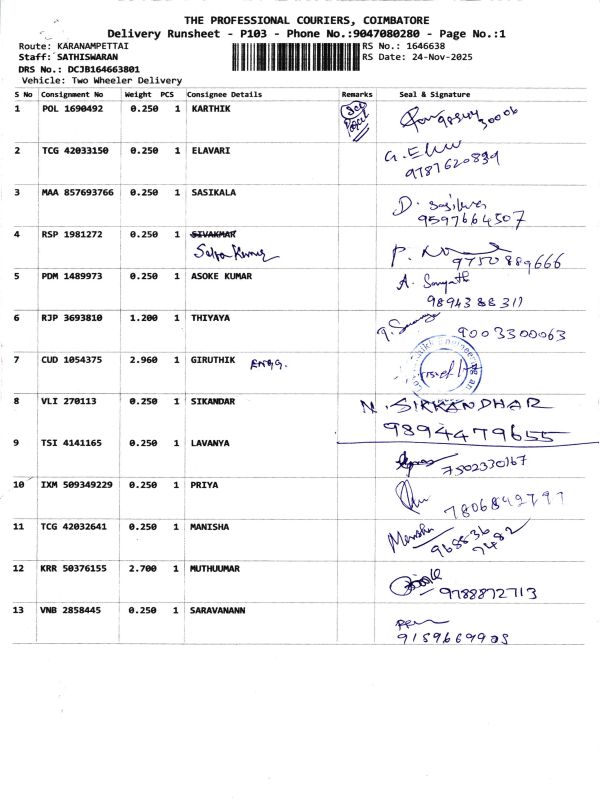 THE PROFESSIONAL COURIERS, COIMBATORE
Delivery Runsheet - P103 - Phone No.:9047080280 - Page No.:1
Route: KARANAMPETTAI RS No.: 1646638
Staff: SATHISWARAN RS Date: 24-Nov-2025
DRS No.: DCJB164663801
Vehicle: Two Wheeler Delivery
S No Consignment No Weight PCS Consignee Details Remarks Seal & Signature
1 POL 1690492 0.250 1 KARTHIK
2 TCG 42033150 0.250 1 ELAVARI
9787620839
3 MAA 857693766 0.250 1 SASIKALA
9597664507
4 RSP 1981272 0.250 1 SIVAKMAR
9750889666
5 PDM 1489973 0.250 1 ASOKE KUMAR
9894388311
6 RJP 3693810 1.200 1 THIYAYA 9003300063
7 CUD 1054375 2.960 1 GIRUTHIK ENGG.
8 VLI 270113 0.250 1 SIKANDAR N. SIKKANDHAR
9894479655
9 TSI 4141165 0.250 1 LAVANYA
7502330167
10 IXM 509349229 0.250 1 PRIYA
11 TCG 42032641 0.250 1 MANISHA Manisha
968836
7482
12 KRR 50376155 2.700 1 MUTHUUMAR
9788872713
13 VNB 2858445 0.250 1 SARAVANANN
9159669905